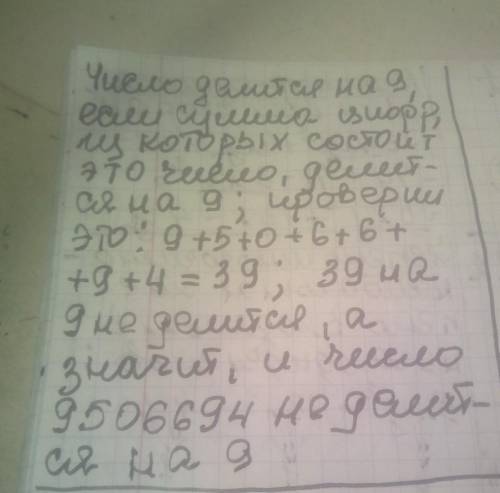 Число делится на 9,
если сумма цифр,
из которых состоит
это число, делит-
ся на 9; проверим
это: 9+5+0+6+6+
+9+4=39; 39 на
9 не делится, а
значит, и число
9506694 не делит-
ся на 9